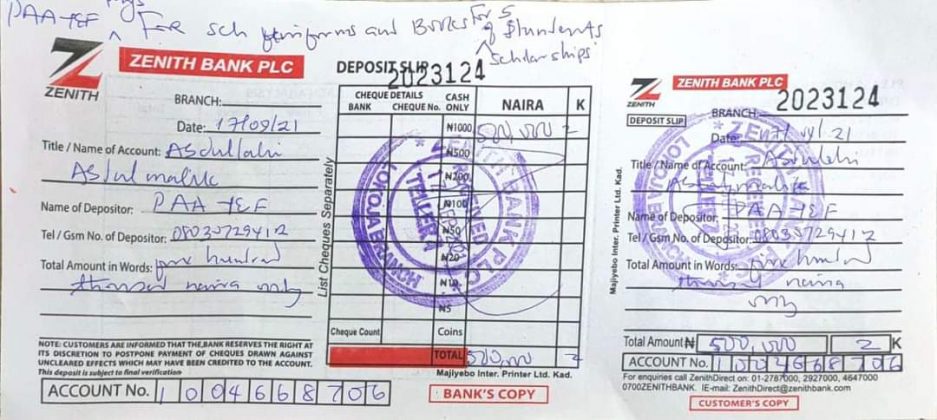 PAA-YEF
For sch uniforms and Books for 5
Students
Scholarships
ZENITH
ZENITH BANK PLC
BRANCH:
Date: 17/09/21
Title / Name of Account: Abdullahi
Abdulmalik
Name of Depositor: PAA YEF
Tel / Gsm No. of Depositor: 08035729412
Total Amount in Words: five hundred
thousand naira only
NOTE: CUSTOMERS ARE INFORMED THAT THE BANK RESERVES THE RIGHT AT
ITS DISCRETION TO POSTPONE PAYMENT OF CHEQUES DRAWN AGAINST
UNCLEARED EFFECTS WHICH MAY HAVE BEEN CREDITED TO THE ACCOUNT.
This deposit is subject to final verification
ACCOUNT No. 1004668706
DEPOSIT SLIP
2023124
CHEQUE DETAILS
BANK CHEQUE No.
CASH ONLY
NAIRA K
List Cheques Separately
₦1000 500,000 =
₦500
₦200
₦100
₦50
₦20
₦10
₦5
Cheque Count Coins
TOTAL 500,000 =
Majiyebo Inter. Printer Ltd. Kad.
BANK'S COPY
ZENITH BANK PLC
RECEIVED
TELLER 1
LOKOJA BRANCH
Majiyebo Inter. Printer Ltd. Kad.
ZENITH
ZENITH BANK PLC
2023124
DEPOSIT SLIP
BRANCH
Date: 21
Title / Name of Account: Abdullahi
Abdulmalik
Name of Depositor: PAA YEF
Tel / Gsm No. of Depositor: 08035729412
Total Amount in Words: five hundred
naira
only
Total Amount ₦ 500,000 = K
ACCOUNT No. 1004668706
For enquiries call ZenithDirect on: 01-2787000, 2927000, 4647000
0700ZENITHBANK. IE-mail: ZenithDirect@zenithbank.com
CUSTOMER'S COPY
LOKOJA BRANCH